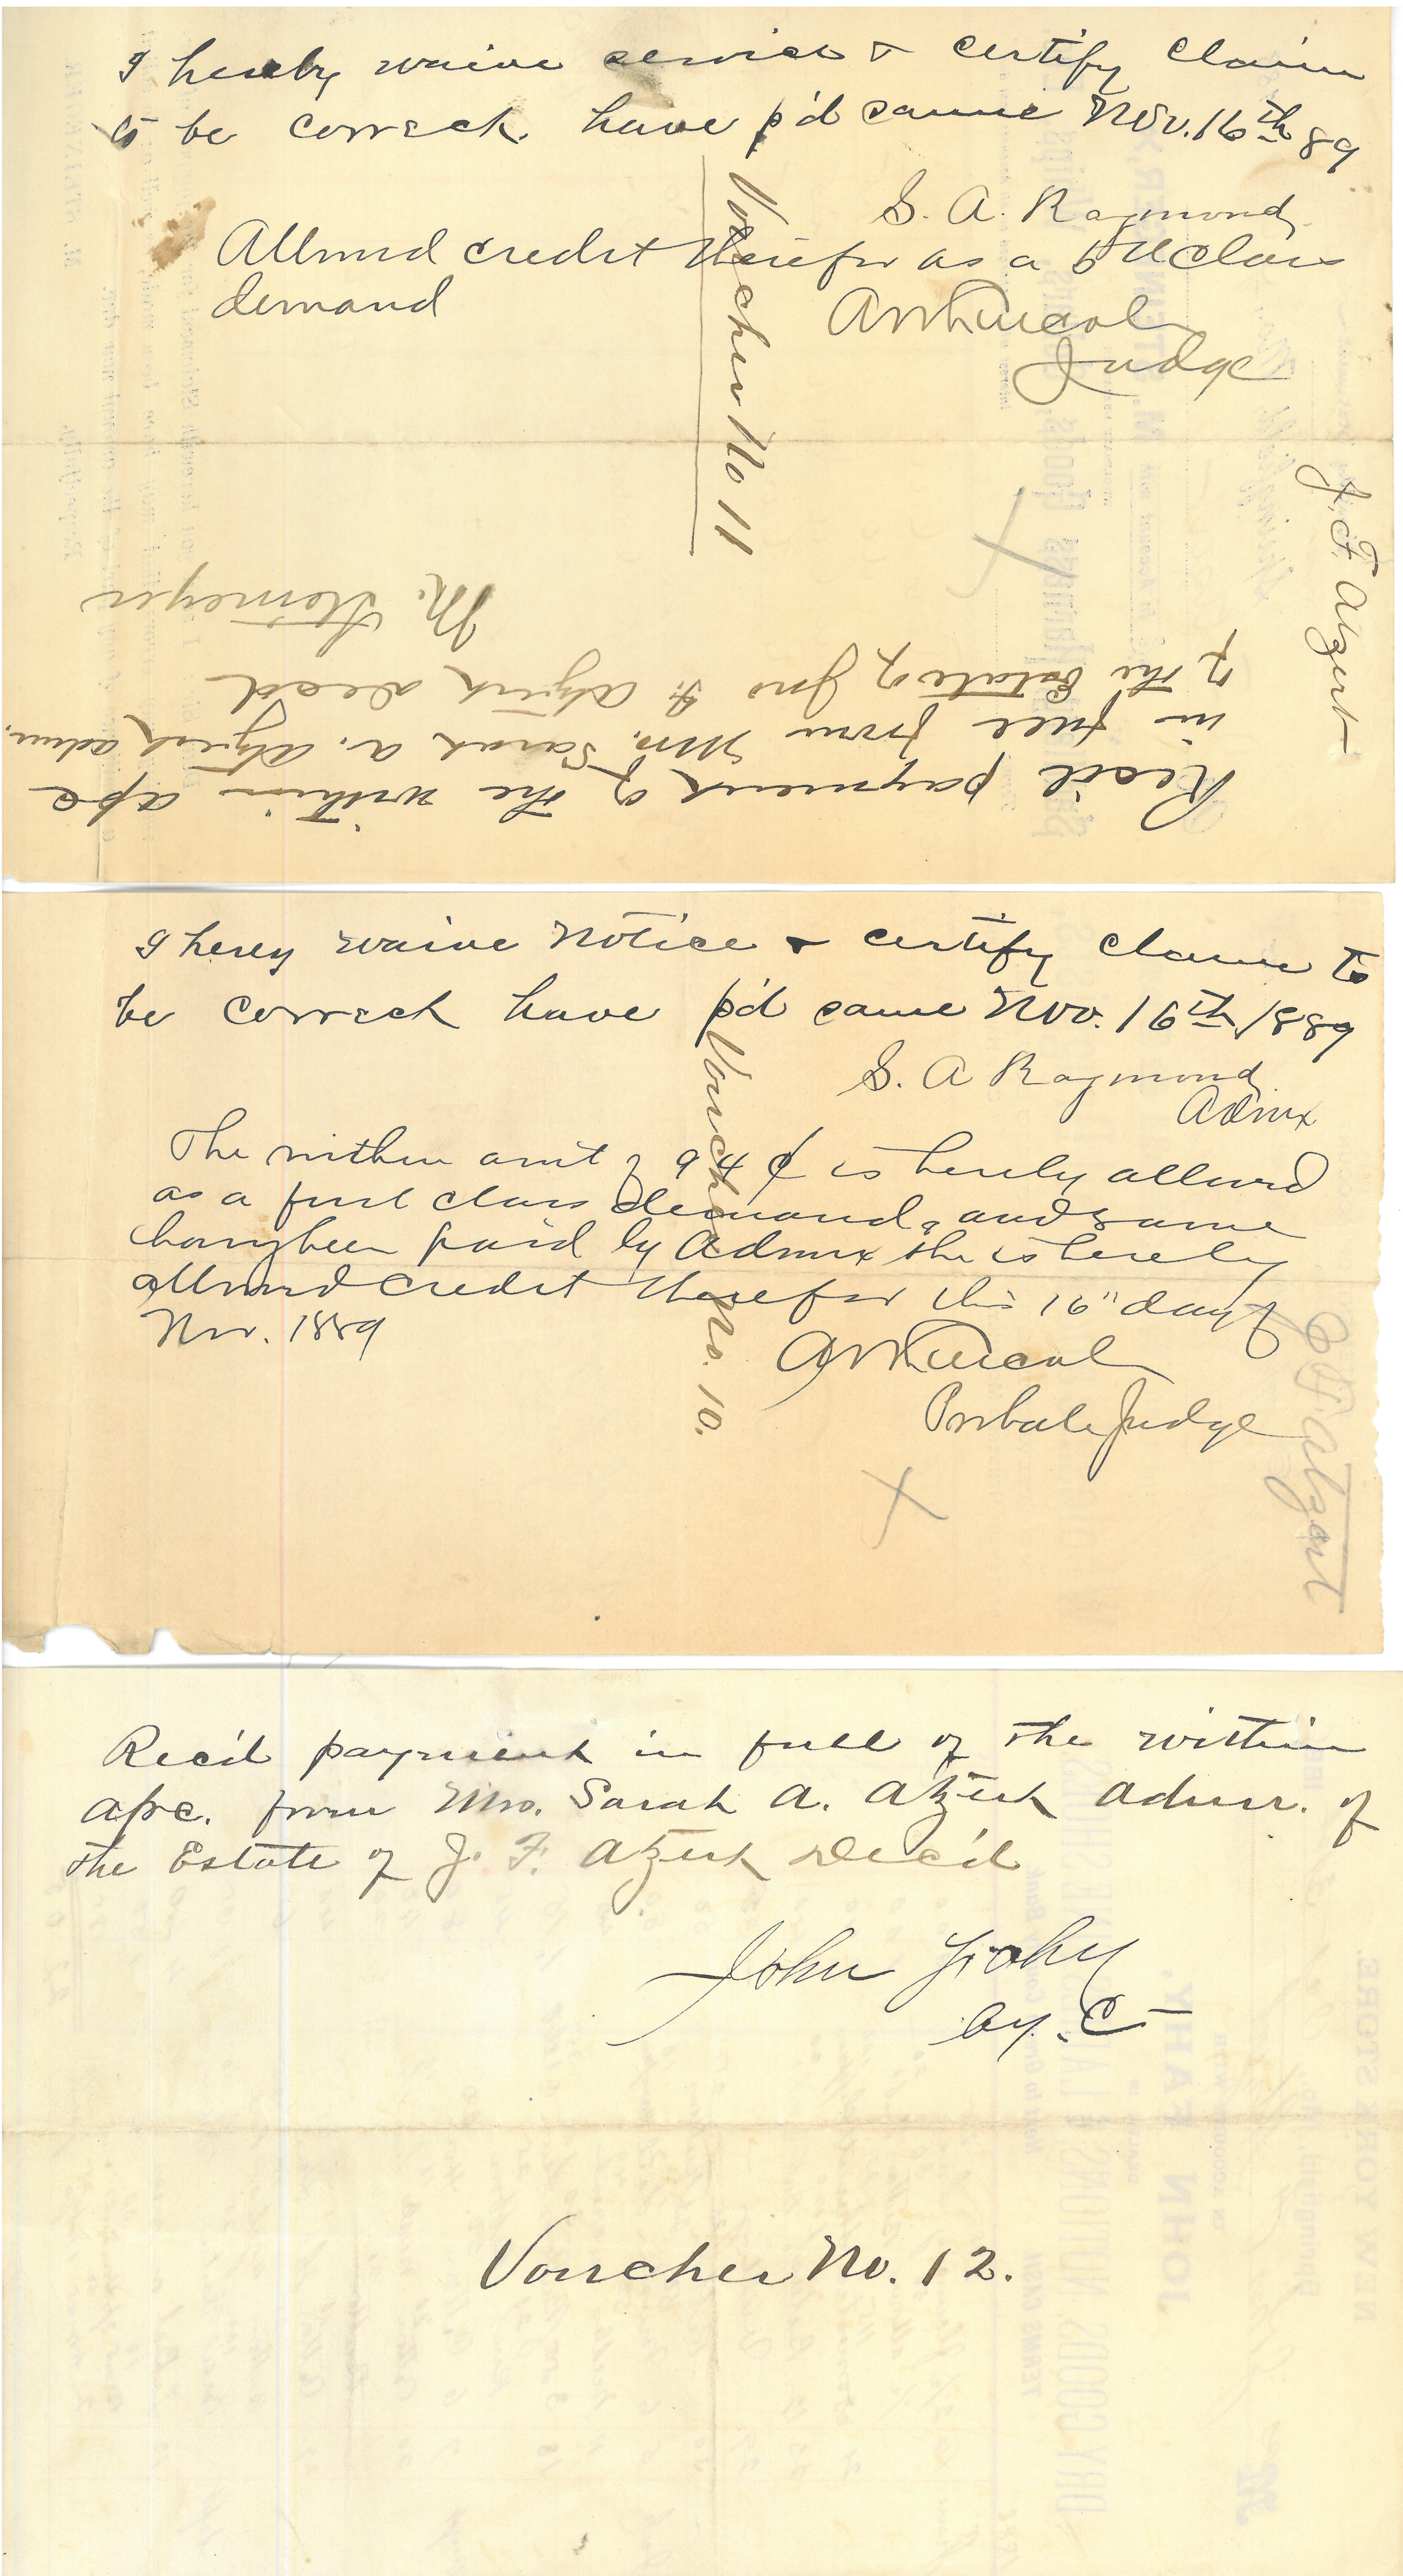 I hereby waive service & certify claim
to be correct. have p'd same Nov. 16th 89
S. A. Raymond
Allowed credit therefor as a 5th class
demand
Judge
Voucher No 11
J. F. Atzert
Recd payment of the within a/c
in full from Mrs. Sarah A. Atzert admr.
of the Estate of Jno F. Atzert decd
M. Stemeyer
I herey waive notice & certify claim to
be correct have p'd same Nov. 16th 1889
S. A Raymond
Admx
The within amt of 94 ¢ is hereby allowed
as a first class demand, and same
having been paid by Admx she is hereby
allowed credit therefor this 16" day of
Nov. 1889
Probate Judge
Voucher No. 10.
J F Atzert
Rec'd payment in full of the within
a/c. from Mrs. Sarah A. Atzert Admr. of
the Estate of J. F. Atzert Dec'd
John Fahy
by. C
Voucher No. 12.
NEW YORK STORE.
Springfield, Mo.,
IN ACCOUNT WITH
JOHN FAHY,
DRY GOODS NOTIONS
TERMS CASH